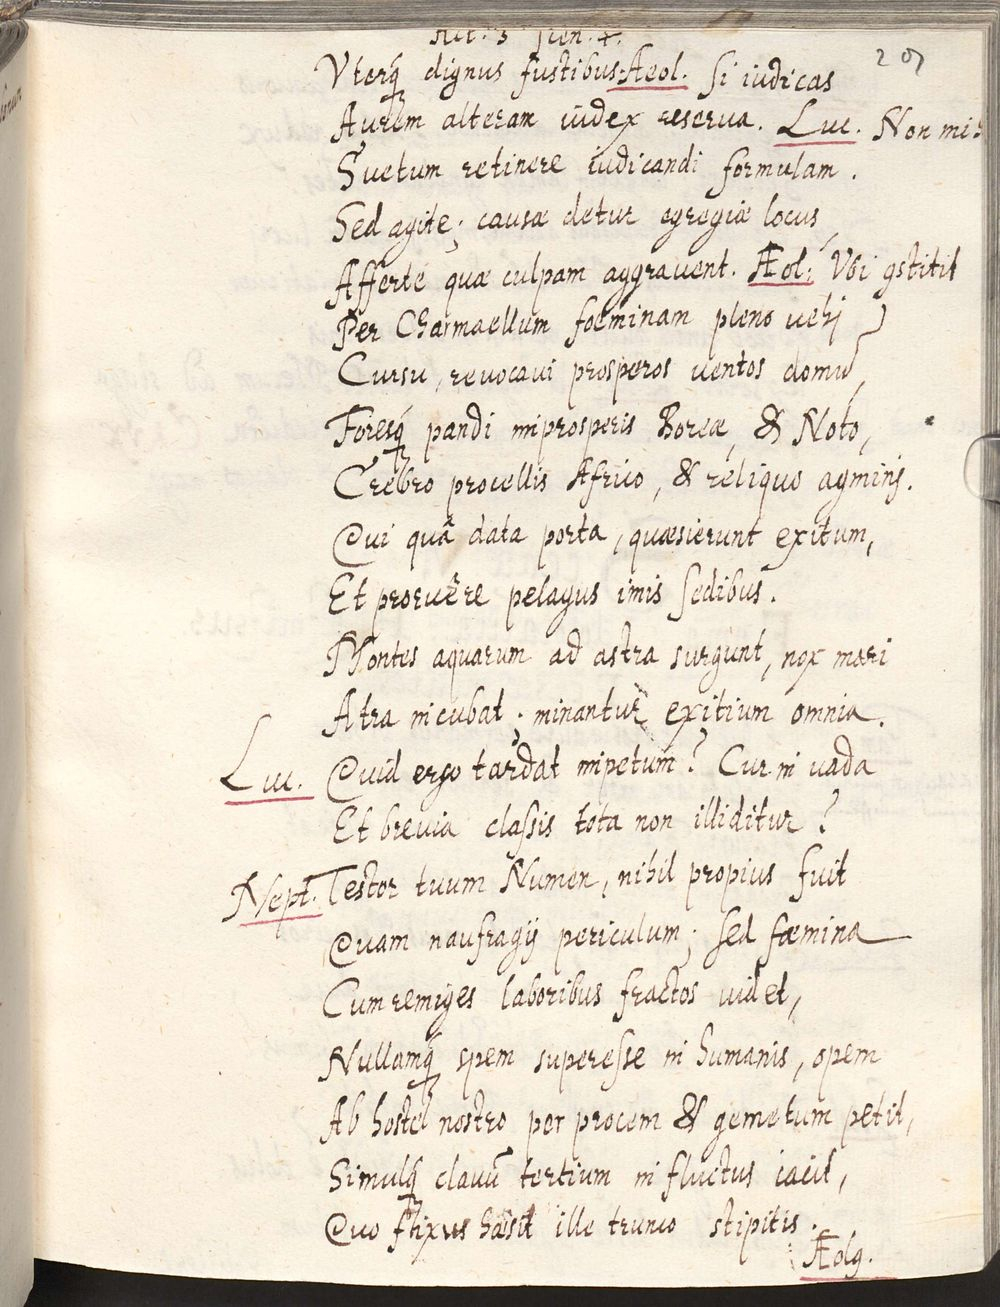 Act. 3 scen. 4.
207
Vterq́ dignus fustibus. Aeol. Si iudicas
Aurem alteram iudex reserua. Luc. Non mihi
Suetum retinere iudicandi formulam.
Sed agite; causæ detur egregiæ locus,
Afferte quæ culpam aggrauent. Æol: Vbi gstitit
Per Charmaellum fœminam pleno uehj
Cursu, reuocaui prosperos uentos domũ,
Foresq́ pandi improsperis Boreæ, & Noto,
Crebro procellis Africo, & reliquo agminj.
Qui quâ data porta, quæsierunt exitum,
Et proruêre pelagus imis sedibus.
Montes aquarum ad astra surgunt, nox mari
Atra incubat; minantur exitium omnia.
Luc. Quid ergo tardat impetum? Cur in uada
Et breuia classis tota non illiditur?
Nept. Testor tuum Numen, nihil propius fuit
Quam naufragij periculum; sed fœmina
Cum remiges laboribus fractos uidet,
Nullamq́ spem superesse in humanis, opem
Ab hoste nostro per precem & gemitum petit,
Simulq́ clauũ tertium in fluctus iacit,
Quo fixus hæsit ille trunco stipitis.
Æolg.